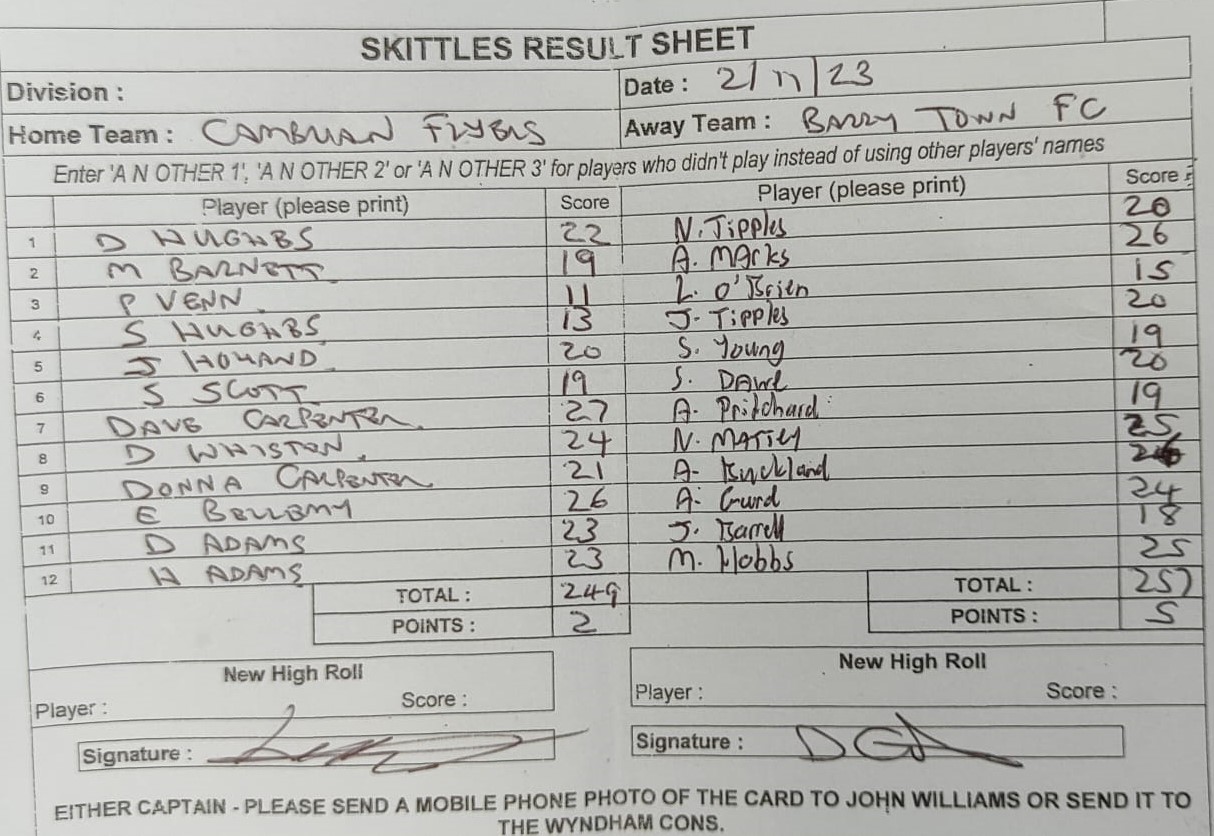 SKITTLES RESULT SHEET
Division : Date : 2/11/23
Home Team : CAMBRIAN FLYERS Away Team : BARRY TOWN FC
Enter 'A N OTHER 1', 'A N OTHER 2' or 'A N OTHER 3' for players who didn't play instead of using other players' names
Player (please print) Score Player (please print) Score
1 D HUGHES 22 N. Tipples 20
2 M BARNETT 19 A. MArks 26
3 P VENN 11 L. O'Brien 15
4 S HUGHES 13 J. Tipples 20
5 J HOLLAND 20 S. Young 19
6 S SCOTT 19 S. DAwe 20
7 DAVE CARPENTER 27 A. Pritchard 19
8 D WHISTON 24 N. 25
9 DONNA CARPENTER 21 A. Buckland 26
10 E BELLEMY 26 A. Gurd 24
11 D ADAMS 23 J. Barrell 18
12 H ADAMS 23 M. Hobbs 25
TOTAL : 249 TOTAL : 257
POINTS : 2 POINTS : 5
New High Roll New High Roll
Player : Score : Player : Score :
Signature : Signature :
EITHER CAPTAIN - PLEASE SEND A MOBILE PHONE PHOTO OF THE CARD TO JOHN WILLIAMS OR SEND IT TO
THE WYNDHAM CONS.